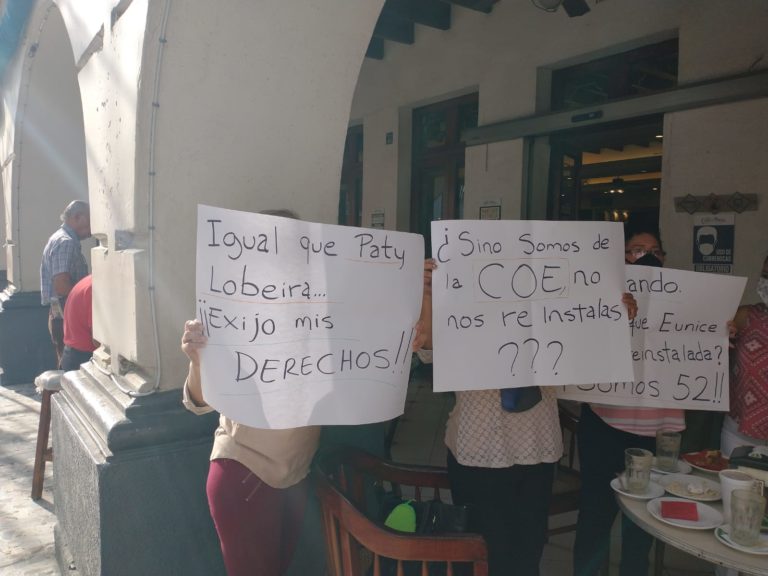 Igual que Paty
Lobeira...
¡¡Exijo mis
DERECHOS!!
¿Sino Somos de
la COE, no
nos reInstalas
???
ando.
que Eunice
reinstalada?
Somos 52!!
USO DE
CUBREBOCAS
OBLIGATORIO